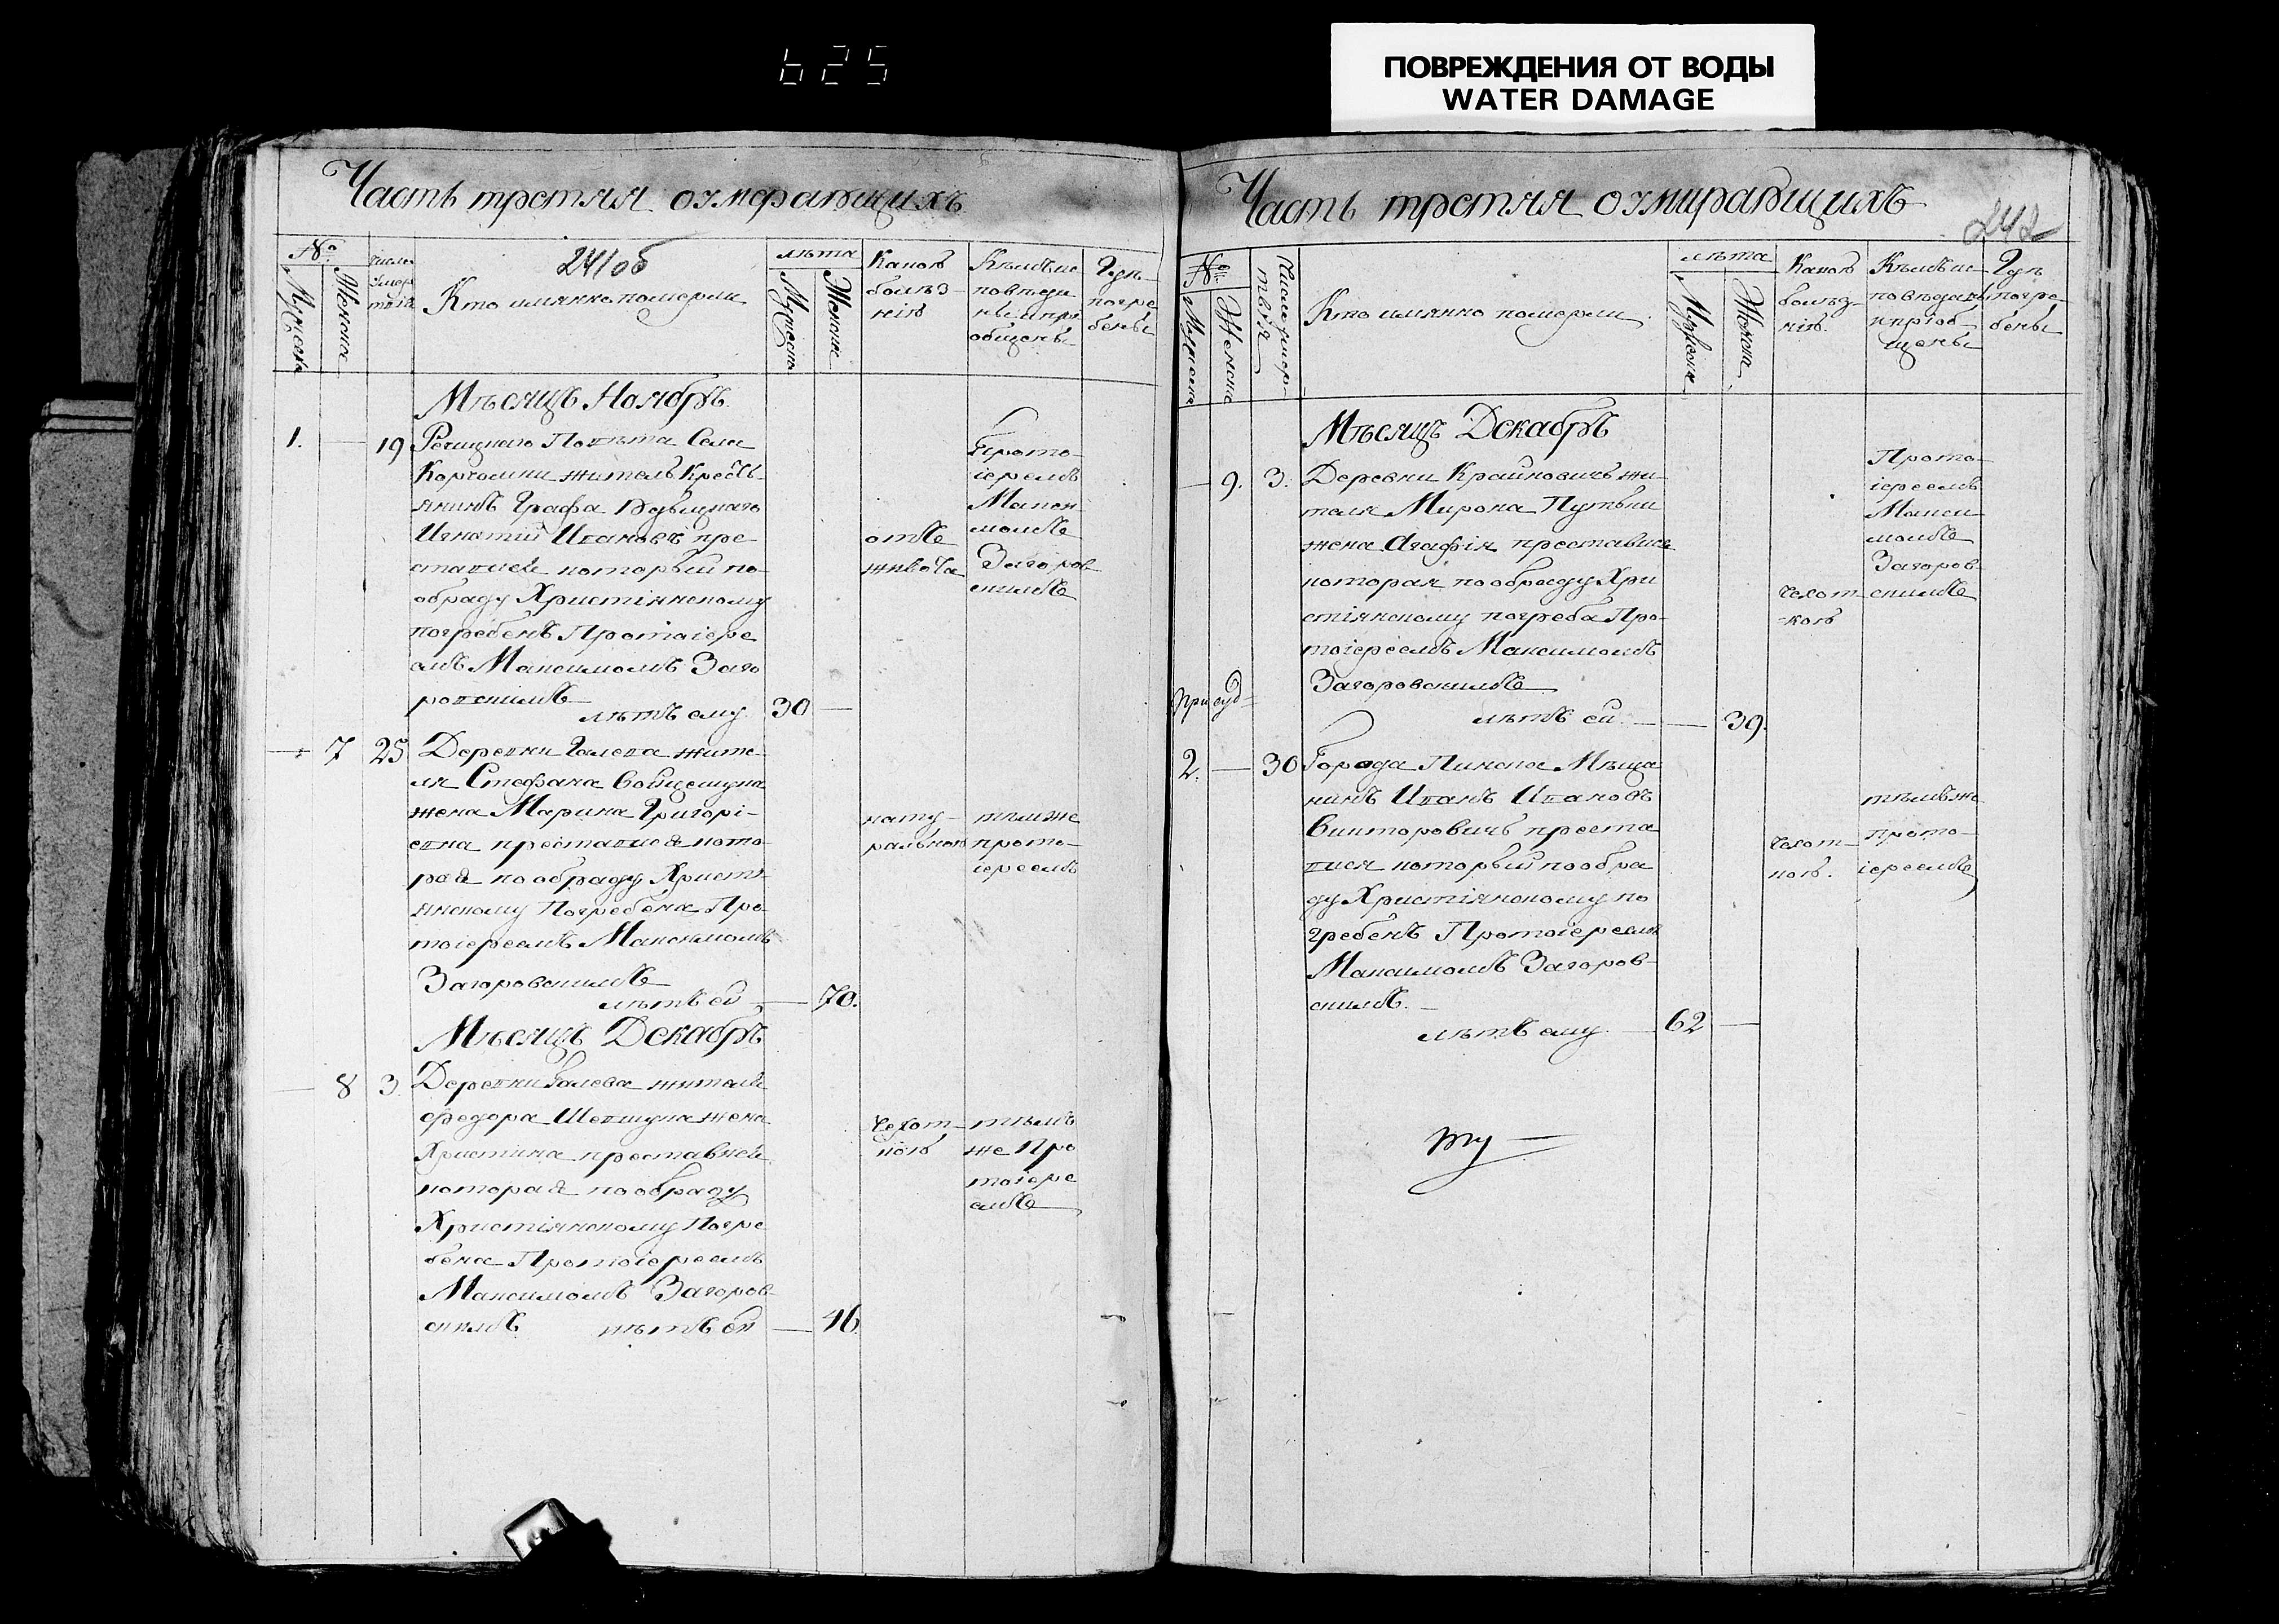 625
ПОВРЕЖДЕНИЯ ОТ ВОДЫ
WATER DAMAGE
Часть третяя оумерапщихъ
241об
№
Мужеска
Женска
число
умер
твія
Кто имянно померли
лѣта
Мужеска
Женска
Какою
болѣз-
нію
Кѣмъ ис
повѣда
ны и прі
общены
Гдѣ
погре
бены
Мѣсяцъ Ноябрь
1. — 19 Речицкаго Повѣта Села
житель Крестъ-
янинъ Графа
Игнатій Ивановъ пре
ставися который по
обряду Христіянскому
погребенъ Протоіере
емъ Максимомъ Заго
ровскимъ
лѣтъ ему 30 —
отъ
живота
Прото-
іереемъ
Макси
момъ
Загоров
скимъ
— 7 25 Деревни Галева жите
ля Стефана
жена Марина Григорі-
евна преставися кото-
рая по обряду Христі
янскому Погребена Про
тоіереемъ Максимомъ
Загоровскимъ
лѣтъ ей — 70.
нату-
ральною
тѣмже
прото-
іереемъ
Мѣсяцъ Декабрь
— 8 3. Деревни Галева жителя
Федора жена
Христина преставися
которая по обряду
Христіянскому Погре
бена Протоіереемъ
Максимомъ Загоров-
скимъ лѣтъ ей — 46
Чехот-
кою
тѣмъ
же Про
тоіере
емъ
Часть третяя оумиравщихъ
242
№
Мужеска
Женска
Число умер-
твія
Кто имянно померли
лѣта
Мужеска
Женска
Какою
болѣз-
нію.
Кѣмъ ис
повѣданы
и пріоб
щены
Гдѣ
погре-
бены
Мѣсяцъ Декабрь
— 9. 3. Деревни Крайновичъ жи-
теля Мирона
жена Агафія преставися
которая по обряду Хри
стіянскому погреба Про-
тоіереемъ Максимомъ
Загоровскимъ
лѣтъ ей — — 39.
Чехот-
-кою
Прото-
іереемъ
Макси
момъ
Загоров
скимъ
2. — 30 Города Пинска Мѣща
нинъ Иванъ Ивановъ
Викторовичъ преста
вися который по обря
ду Христіянскому по
гребенъ Протоіереемъ
Максимомъ Загоров-
скимъ. —
лѣтъ ему. — 62 —
Чехот-
кою.
тѣмъже
прото-
іереемъ